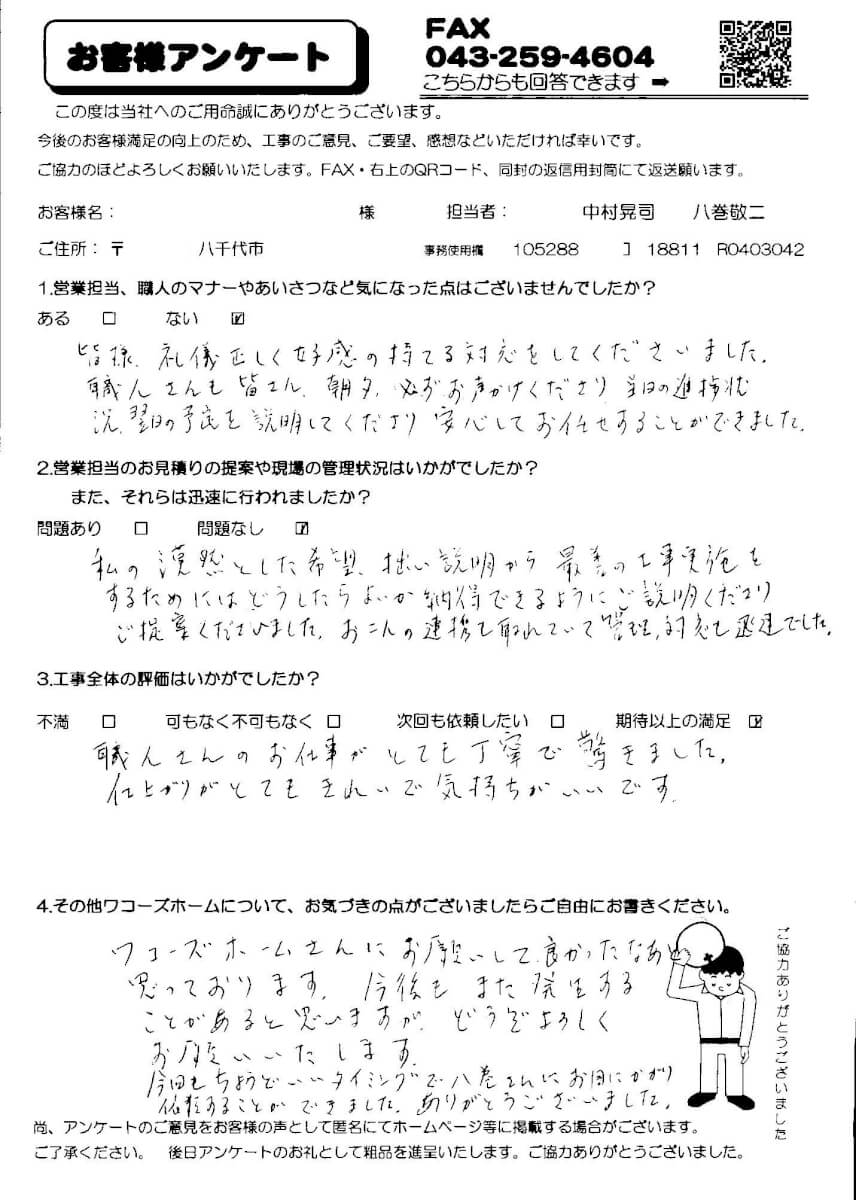 お客様アンケート
FAX
043-259-4604
こちらからも回答できます ➡
この度は当社へのご用命誠にありがとうございます。
今後のお客様満足の向上のため、工事のご意見、ご要望、感想などいただければ幸いです。
ご協力のほどよろしくお願いいたします。FAX・右上のQRコード、同封の返信用封筒にて返送願います。
お客様名： 様 担当者： 中村晃司 八巻敬二
ご住所：〒 八千代市 事務使用欄 105288 ] 18811 R0403042
1.営業担当、職人のマナーやあいさつなど気になった点はございませんでしたか？
ある □ ない ☑
皆様、礼儀正しく好感の持てる対応をしてくださいました。
職人さんも皆さん、朝夕、必ずお声かけくださり 当日の進捗状
況、翌日の予定を説明してくださり 安心してお任せすることができました。
2.営業担当のお見積りの提案や現場の管理状況はいかがでしたか？
また、それらは迅速に行われましたか？
問題あり □ 問題なし ☑
私の漠然とした希望、拙い説明から 最善の工事実施を
するためにはどうしたらよいか納得できるようにご説明くださり
ご提案くださいました。お二人の連携も取れていて管理、対応も迅速でした。
3.工事全体の評価はいかがでしたか？
不満 □ 可もなく不可もなく □ 次回も依頼したい □ 期待以上の満足 ☑
職人さんのお仕事がとても丁寧で驚きました。
仕上がりがとてもきれいで気持ちがいいです。
4.その他ワコーズホームについて、お気づきの点がございましたらご自由にお書きください。
ワコーズホームさんにお願いして良かったなあと
思っております。今後もまた発生する
ことがあると思いますが、どうぞよろしく
お願いいたします。
今回もちょうどいいタイミングで八巻さんにお目にかかり
依頼することができました。ありがとうございました。
ご協力ありがとうございました
尚、アンケートのご意見をお客様の声として匿名にてホームページ等に掲載する場合がございます。
ご了承ください。 後日アンケートのお礼として粗品を進呈いたします。ご協力ありがとうございました。